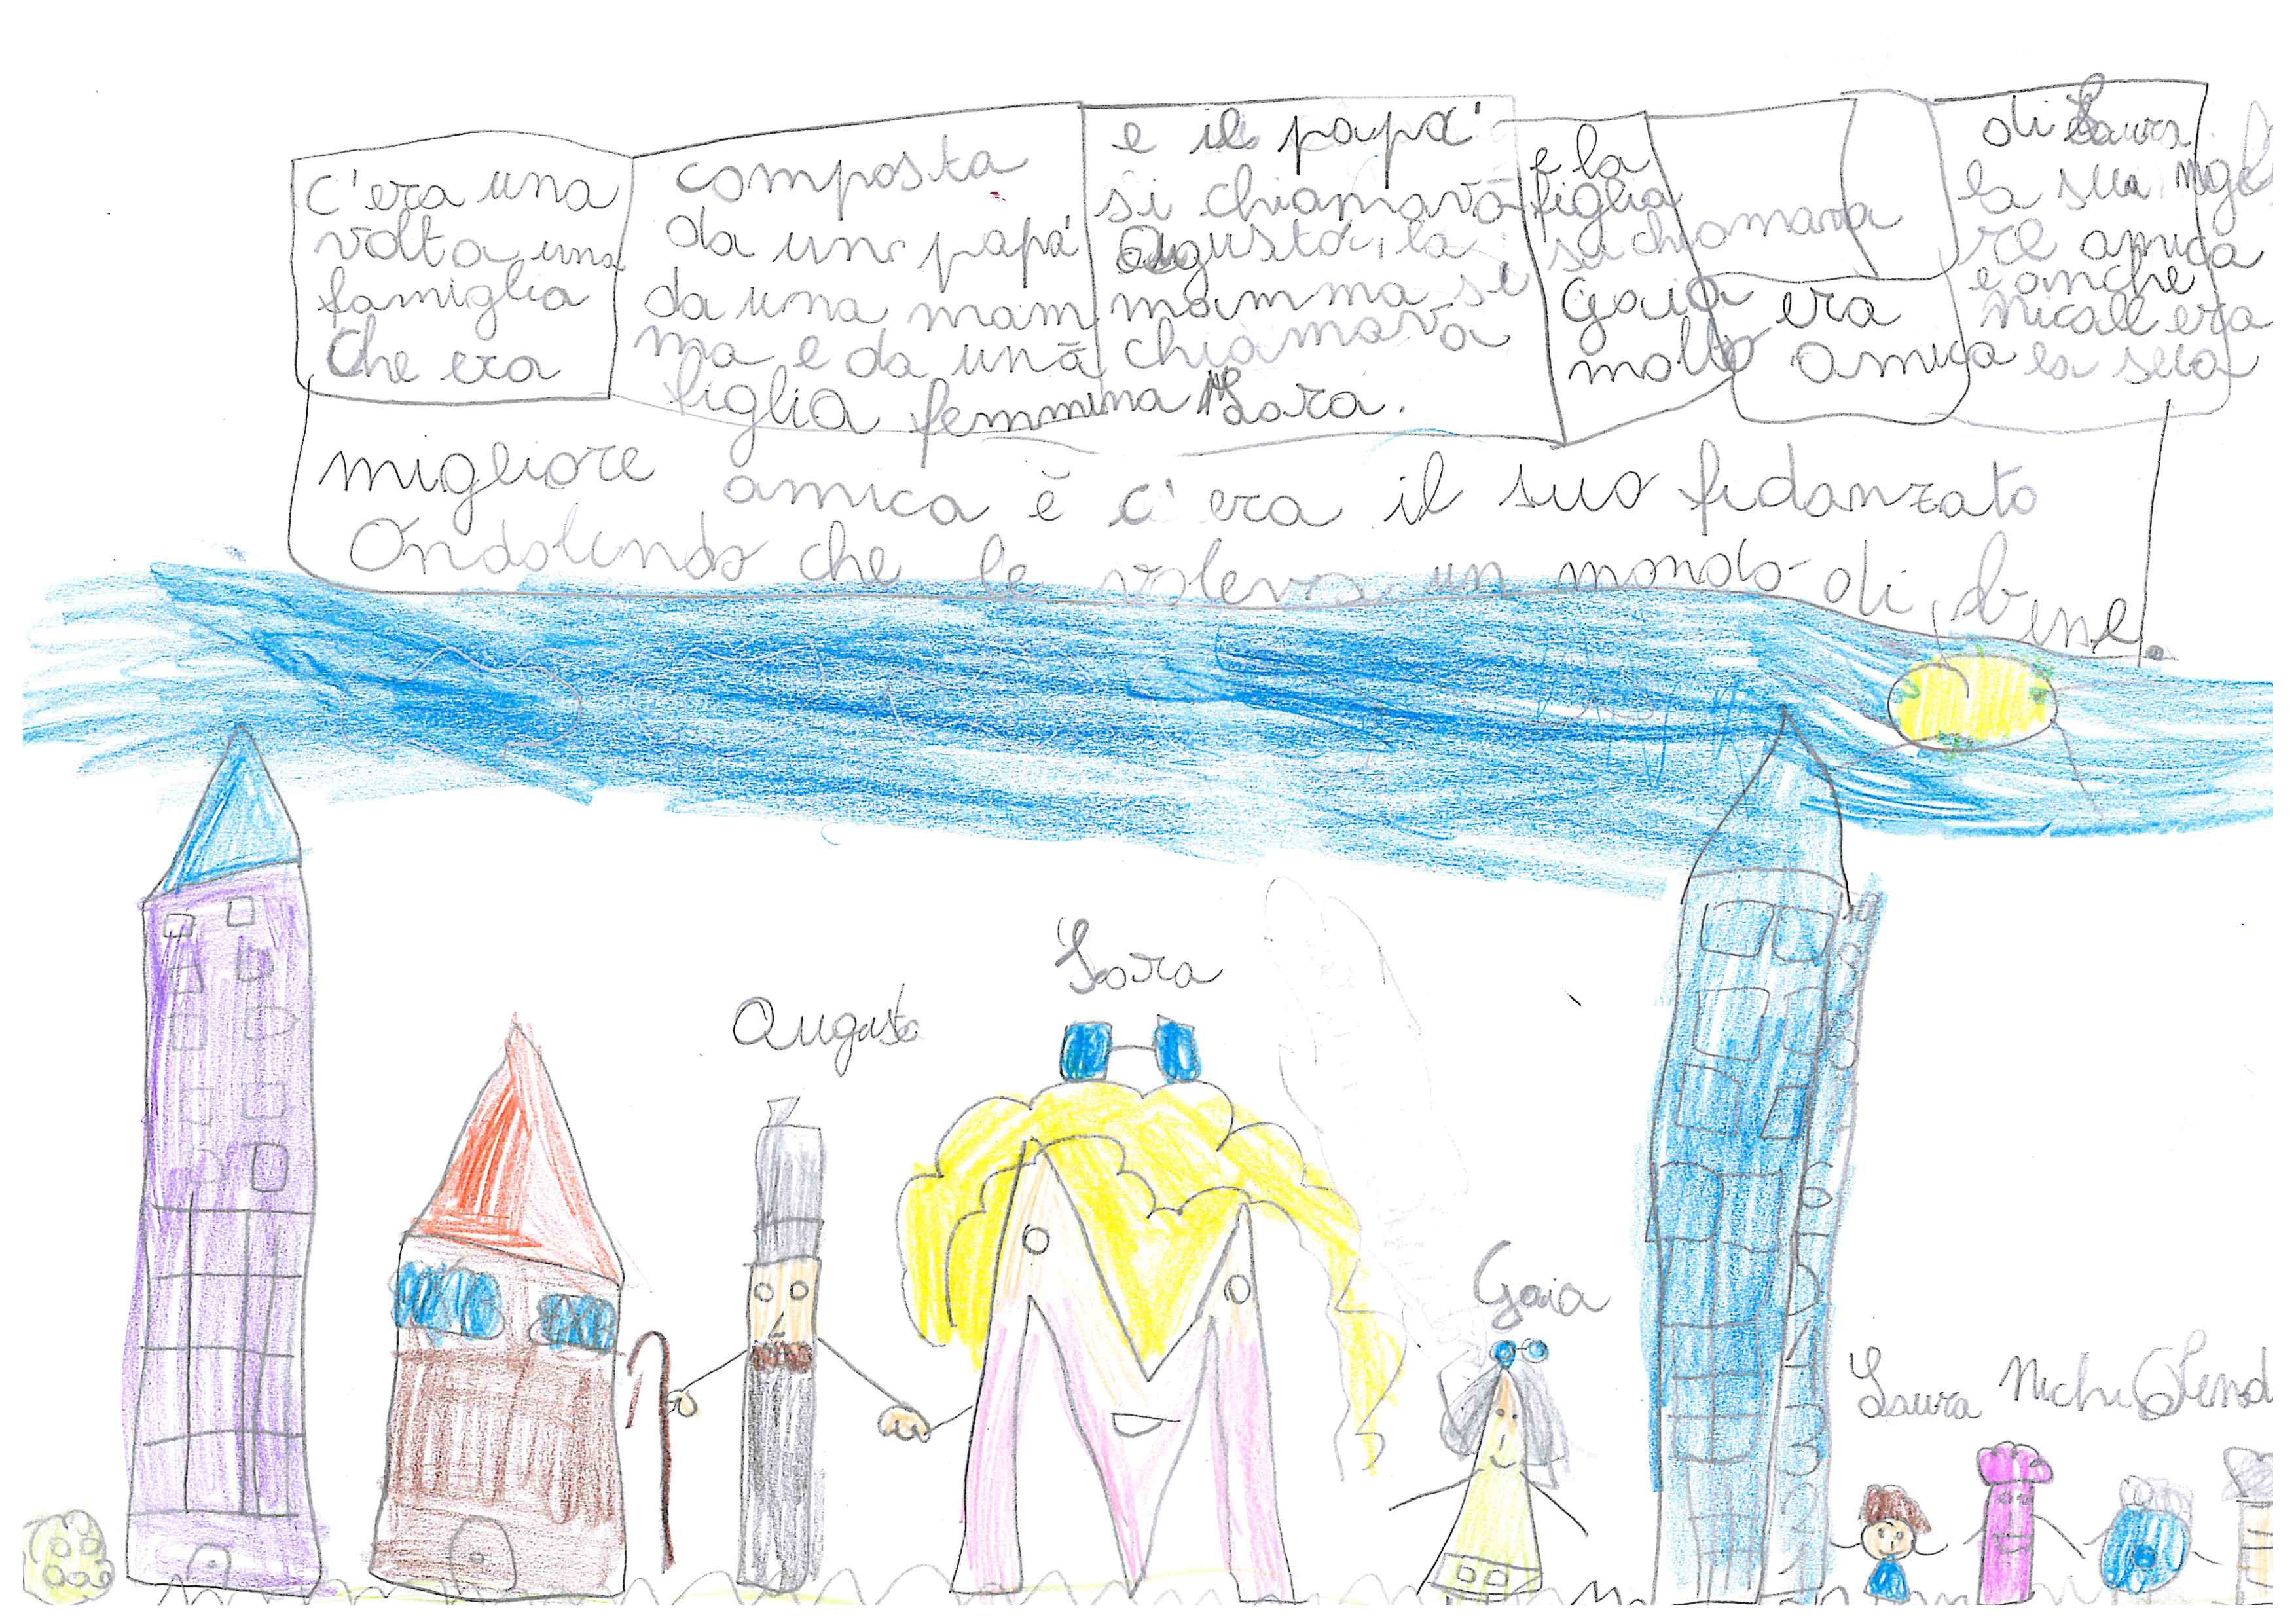 c'era una
volta una
famiglia
che era
composta
da un papà
da una mam
ma e da una
figlia femmina
e il papà
si chiamava
Augusto, la
mamma si
chiamava
Lora.
e la
figlia
si chiamava
Gaia era
molto amica
di Laura
la sua miglio
re amica
e anche
Nicall era
la sua
migliore amica e c'era il suo fidanzato
Ondolindo che le voleva un mondo di bene.
Lora
Augusto
Gaia
Laura